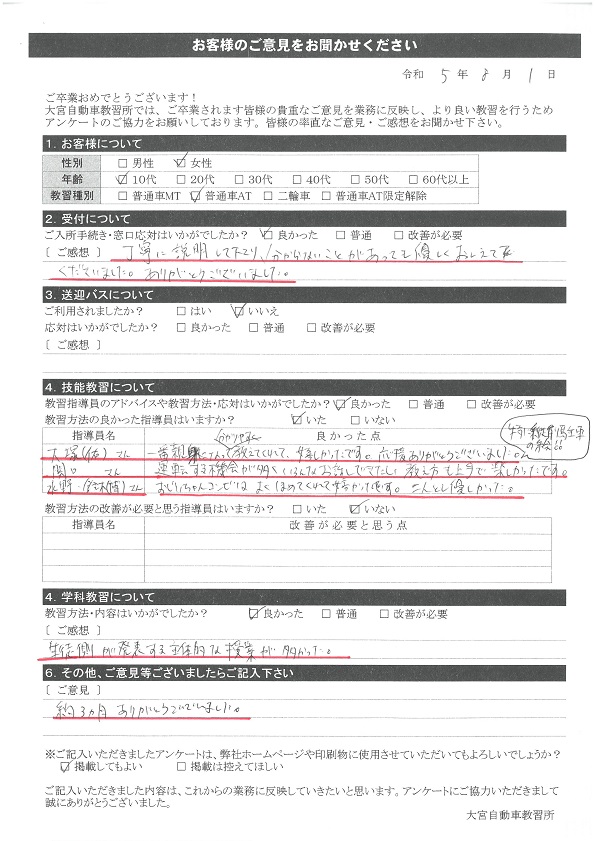 お客様のご意見をお聞かせください
令和 5 年 8 月 1 日
ご卒業おめでとうございます！
大宮自動車教習所では、ご卒業されます皆様の貴重なご意見を業務に反映し、より良い教習を行うため
アンケートのご協力をお願いしております。皆様の率直なご意見・ご感想をお聞かせ下さい。
1. お客様について
性別 □ 男性 ☑ 女性
年齢 ☑ 10代 □ 20代 □ 30代 □ 40代 □ 50代 □ 60代以上
教習種別 □ 普通車MT ☑ 普通車AT □ 二輪車 □ 普通車AT限定解除
2. 受付について
ご入所手続き・窓口応対はいかがでしたか？ ☑ 良かった □ 普通 □ 改善が必要
［ ご感想 ］ 丁寧に説明して下さり、分からないことがあっても優しくおしえて
くださいました。ありがとうございました。
3. 送迎バスについて
ご利用されましたか？ □ はい ☑ いいえ
応対はいかがでしたか？ □ 良かった □ 普通 □ 改善が必要
［ ご感想 ］
4. 技能教習について
教習指導員のアドバイスや教習方法・応対はいかがでしたか？ ☑ 良かった □ 普通 □ 改善が必要
教習方法の良かった指導員はいますか？ ☑ いた □ いない
指導員名 良かった点
大塚(佑)さん 一番親 になって教えてくれて、嬉しかったです。応援ありがとうございました。
関口 さん 運転する機会が多く、いろんなお話しできてたのしい 教え方も上手で楽しかったです。
水野/ さん おじいちゃんコンビは よくほめてくれて嬉しかったです。二人とも優しかった。
教習方法の改善が必要と思う指導員はいますか？ □ いた ☑ いない
指導員名 改善が必要と思う点
4. 学科教習について
教習方法・内容はいかがでしたか？ ☑ 良かった □ 普通 □ 改善が必要
［ ご感想 ］
生徒側が発表する主体的な授業が多かった。
6. その他、ご意見等ございましたらご記入下さい
［ ご意見 ］
約3ヵ月 ありがとうございました。
※ご記入いただきましたアンケートは、弊社ホームページや印刷物に使用させていただいてもよろしいでしょうか？
☑ 掲載してもよい □ 掲載は控えてほしい
ご記入いただきました内容は、これからの業務に反映していきたいと思います。アンケートにご協力いただきまして
誠にありがとうございました。
大宮自動車教習所